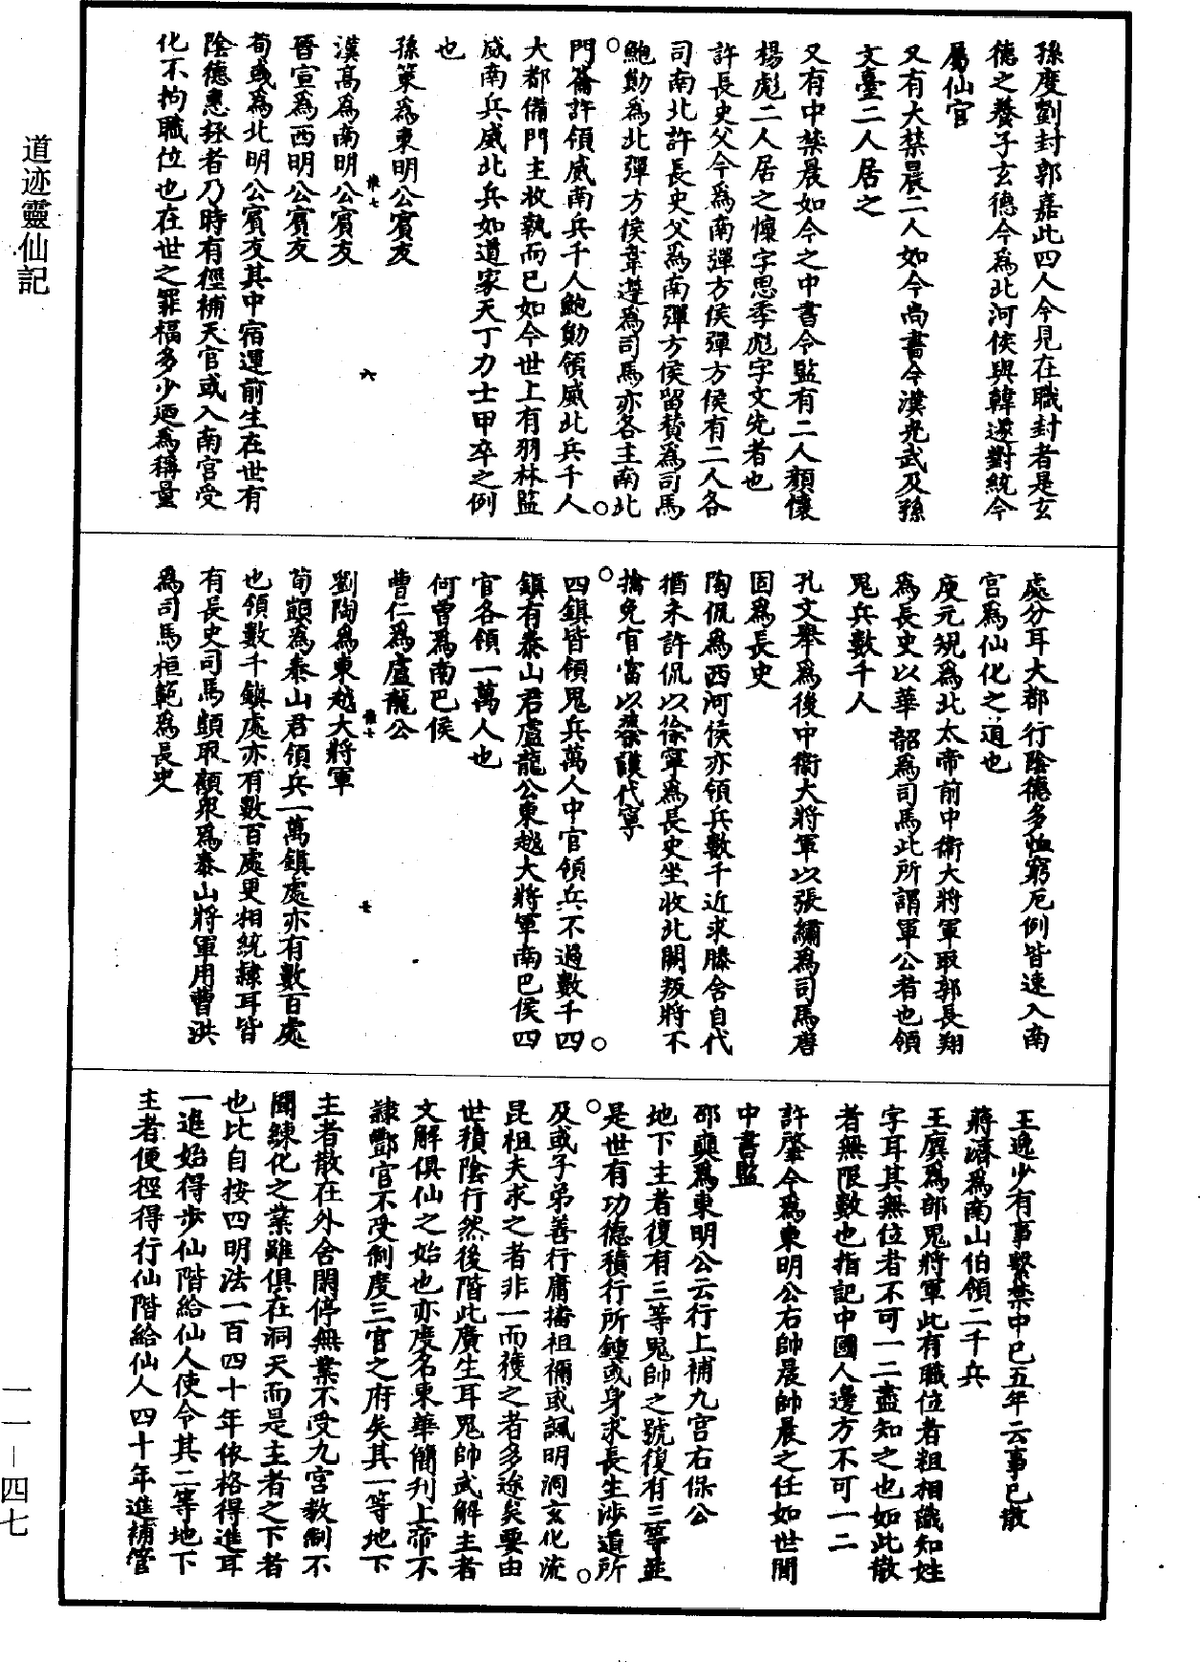 道迹靈仙記
孫度劉封郭嘉此四人今見在職封者是玄
德之養子玄德今為北河侯與韓遂對統今
屬仙官
又有大禁晨二人如今尚書令漢光武及孫
文臺二人居之
又有中禁晨如今之中書令監有二人顏懷
楊彪二人居之懷字思季彪字文先者也
許長史父今為南彈方侯彈方侯有二人各
司南北許長史父為南彈方侯留贊為司馬
鮑勛為北彈方侯韋遵為司馬亦各主南北
門籥許領威南兵千人鮑勛領威北兵千人
大都備門主收執而已如今世上有羽林監
威南兵威北兵如道家天丁力士甲卒之例
也
孫策為東明公賓友
漢高為南明公賓友
晉宣為西明公賓友
荀彧為北明公賓友其中宿運前生在世有
陰德惠拯者乃時有徑補天官或入南宮受
化不拘職位也在世之罪福多少迺為稱量
六
處分耳大都行陰德多恤窮厄例皆速入南
宮為仙化之道也
庾元規為北太帝前中衛大將軍取郭長翔
為長史以華韶為司馬此所謂軍公者也領
鬼兵數千人
孔文舉為後中衛大將軍以張繡為司馬唐
固為長史
陶侃為西河侯亦領兵數千近求滕含自代
猶未許侃以徐寧為長史坐收北闕叛將不
擒免官當以蔡謨代寧
四鎮皆領鬼兵萬人中官領兵不過數千四
鎮有泰山君盧龍公東越大將軍南巴侯四
官各領一萬人也
何曾為南巴侯
曹仁為盧龍公
劉陶為東越大將軍
荀顗為泰山君領兵一萬鎮處亦有數百處
也領數千鎮處亦有數百處更相統隸耳皆
有長史司馬顗取顧眾為泰山將軍用曹洪
為司馬桓範為長史
七
王逸少有事繫禁中已五年云事已散
蔣濟為南山伯領二千兵
王廙為部鬼將軍此有職位者粗相識知姓
字耳其無位者不可一二盡知之也如此散
者無限數也指記中國人邊方不可一二
許肇今為東明公右帥晨帥晨之任如世間
中書監
邵奭為東明公云行上補九宮右保公
地下主者復有三等鬼帥之號復有三等並
是世有功德積行所鎮或身求長生涉道所
及或子弟善行庸播祖禰或諷明洞玄化流
昆祖夫求之者非一而獲之者多途矣要由
世積陰行然後階此廣生耳鬼帥武解主者
文解俱仙之始也亦度名東華簡刊上帝不
隸酆官不受制度三官之府矣其一等地下
主者散在外舍閑停無業不受九宮教制不
聞練化之業雖俱在洞天而是主者之下者
也比自按四明法一百四十年依格得進耳
一進始得步仙階給仙人使令其二等地下
主者便徑得行仙階給仙人四十年進補管
一一—四七